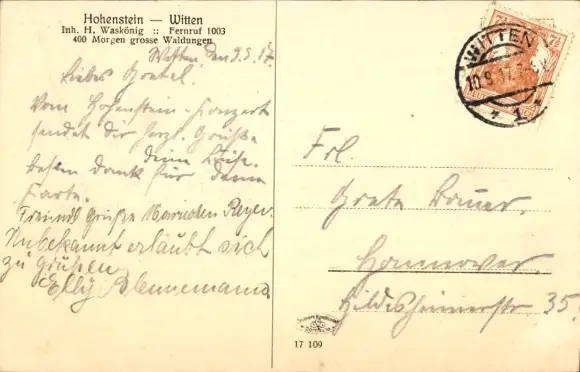 Hohenstein — Witten
Inh. H. Waskönig :: Fernruf 1003
400 Morgen grosse Waldungen
Witten, den 9.9.17.
Liebes Gretel.
Vom Hohenstein-Konzert
sendet dir herzl. Grüße
deine Luise.
Besten Dank für deine
Karte.
Freundl Grüße
Unbekannt erlaubt sich
zu grüßen
Elly Blennemann
7½ 7½
WITTEN
10.9.17.
* 1 *
Frl.
Greta
Hannover
Hildesheimerstr 35.
17 109